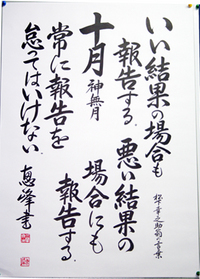 いい結果の場合も
報告する。悪い結果の
場合にも
報告する。
十月 神無月
常に報告を
怠ってはいけない。
恵峰書
松下幸之助翁の言葉